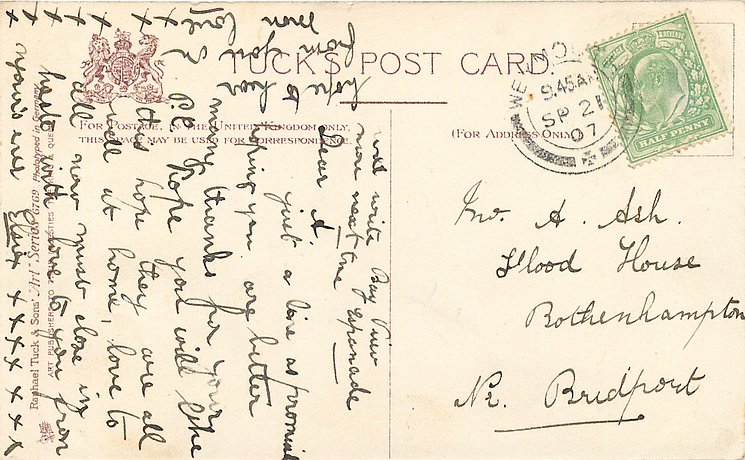 TUCK'S POST CARD.
FOR POSTAGE IN THE UNITED KINGDOM ONLY,
THIS SPACE MAY BE USED FOR CORRESPONDENCE.
(FOR ADDRESS ONLY)
HALF PENNY
9.45 AM
SP 21
07
A. Ash.
Flood House
Bothenhampton
Nr. Bridport
will write Bay View
more next time Esplanade
Dear A.
just a line as promised
hoping you are better
many thanks for your
P.C. Hope you will like
this hope they are all
well at home, love to
all now must close in
haste with love to you from
yours ever Elsie x x x x x x x
hope to hear
from you
soon
love to
x x x x x
Raphael Tuck & Sons' "Art" Series 6769 Phototyped in Germany
ART PUBLISHERS TO THEIR MAJESTIES THE KING & QUEEN